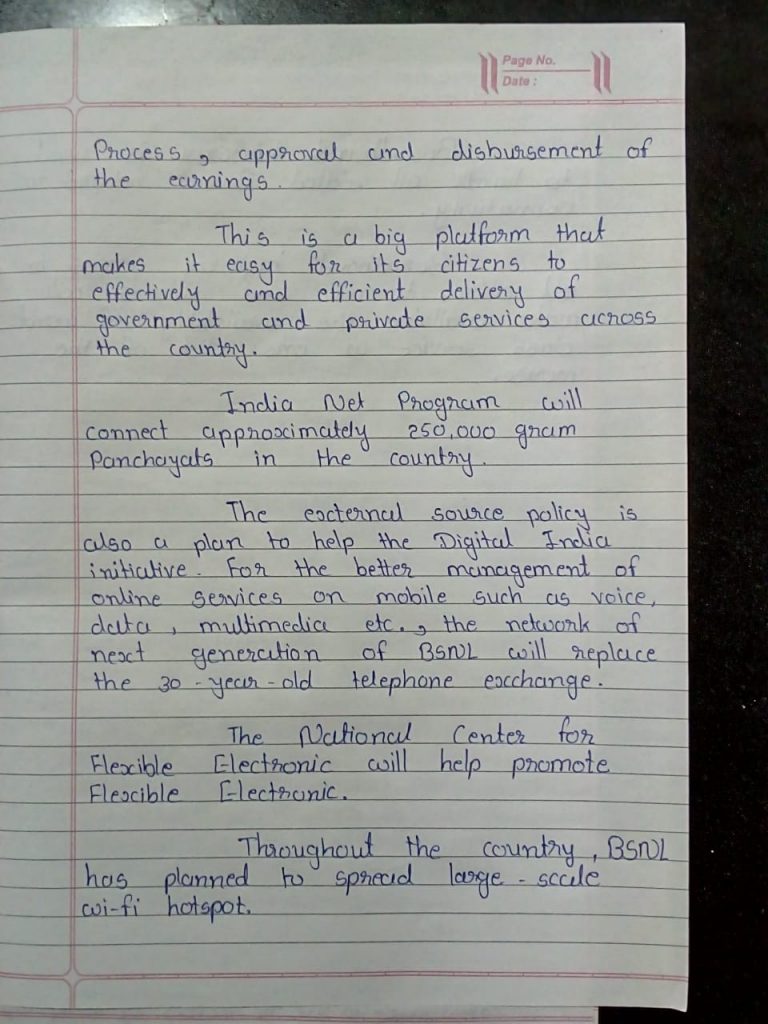 Page No.
Date :
Process, approval and disbursement of
the earnings.
This is a big platform that
makes it easy for its citizens to
effectively and efficient delivery of
government and private services across
the country.
India Net Program will
connect approximately 250,000 gram
Panchayats in the country.
The external source policy is
also a plan to help the Digital India
initiative. For the better management of
online services on mobile such as voice,
data, multimedia etc., the network of
next generation of BSNL will replace
the 30-year-old telephone exchange.
The National Center for
Flexible Electronic will help promote
Flexible Electronic.
Throughout the country, BSNL
has planned to spread large-scale
wi-fi hotspot.